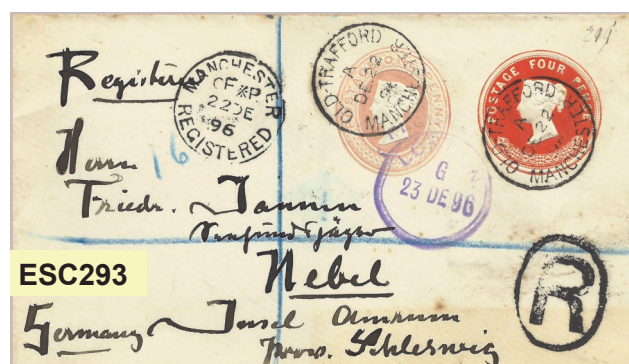 294
Registered
MANCHESTER
CF *P
22 DE
96
REGISTERED
OLD-TRAFFORD
A
DE 22
96
MANCHESTER
POSTAGE FOUR PENCE
OLD-TRAFFORD
A
DE 22
MANCHESTER
16
G
23 DE 96
Herrn
Friedr. Jannen
Seehundsjäger
Nebel
ESC293
Germany Insel Amrum
Prov. Schleswig
R